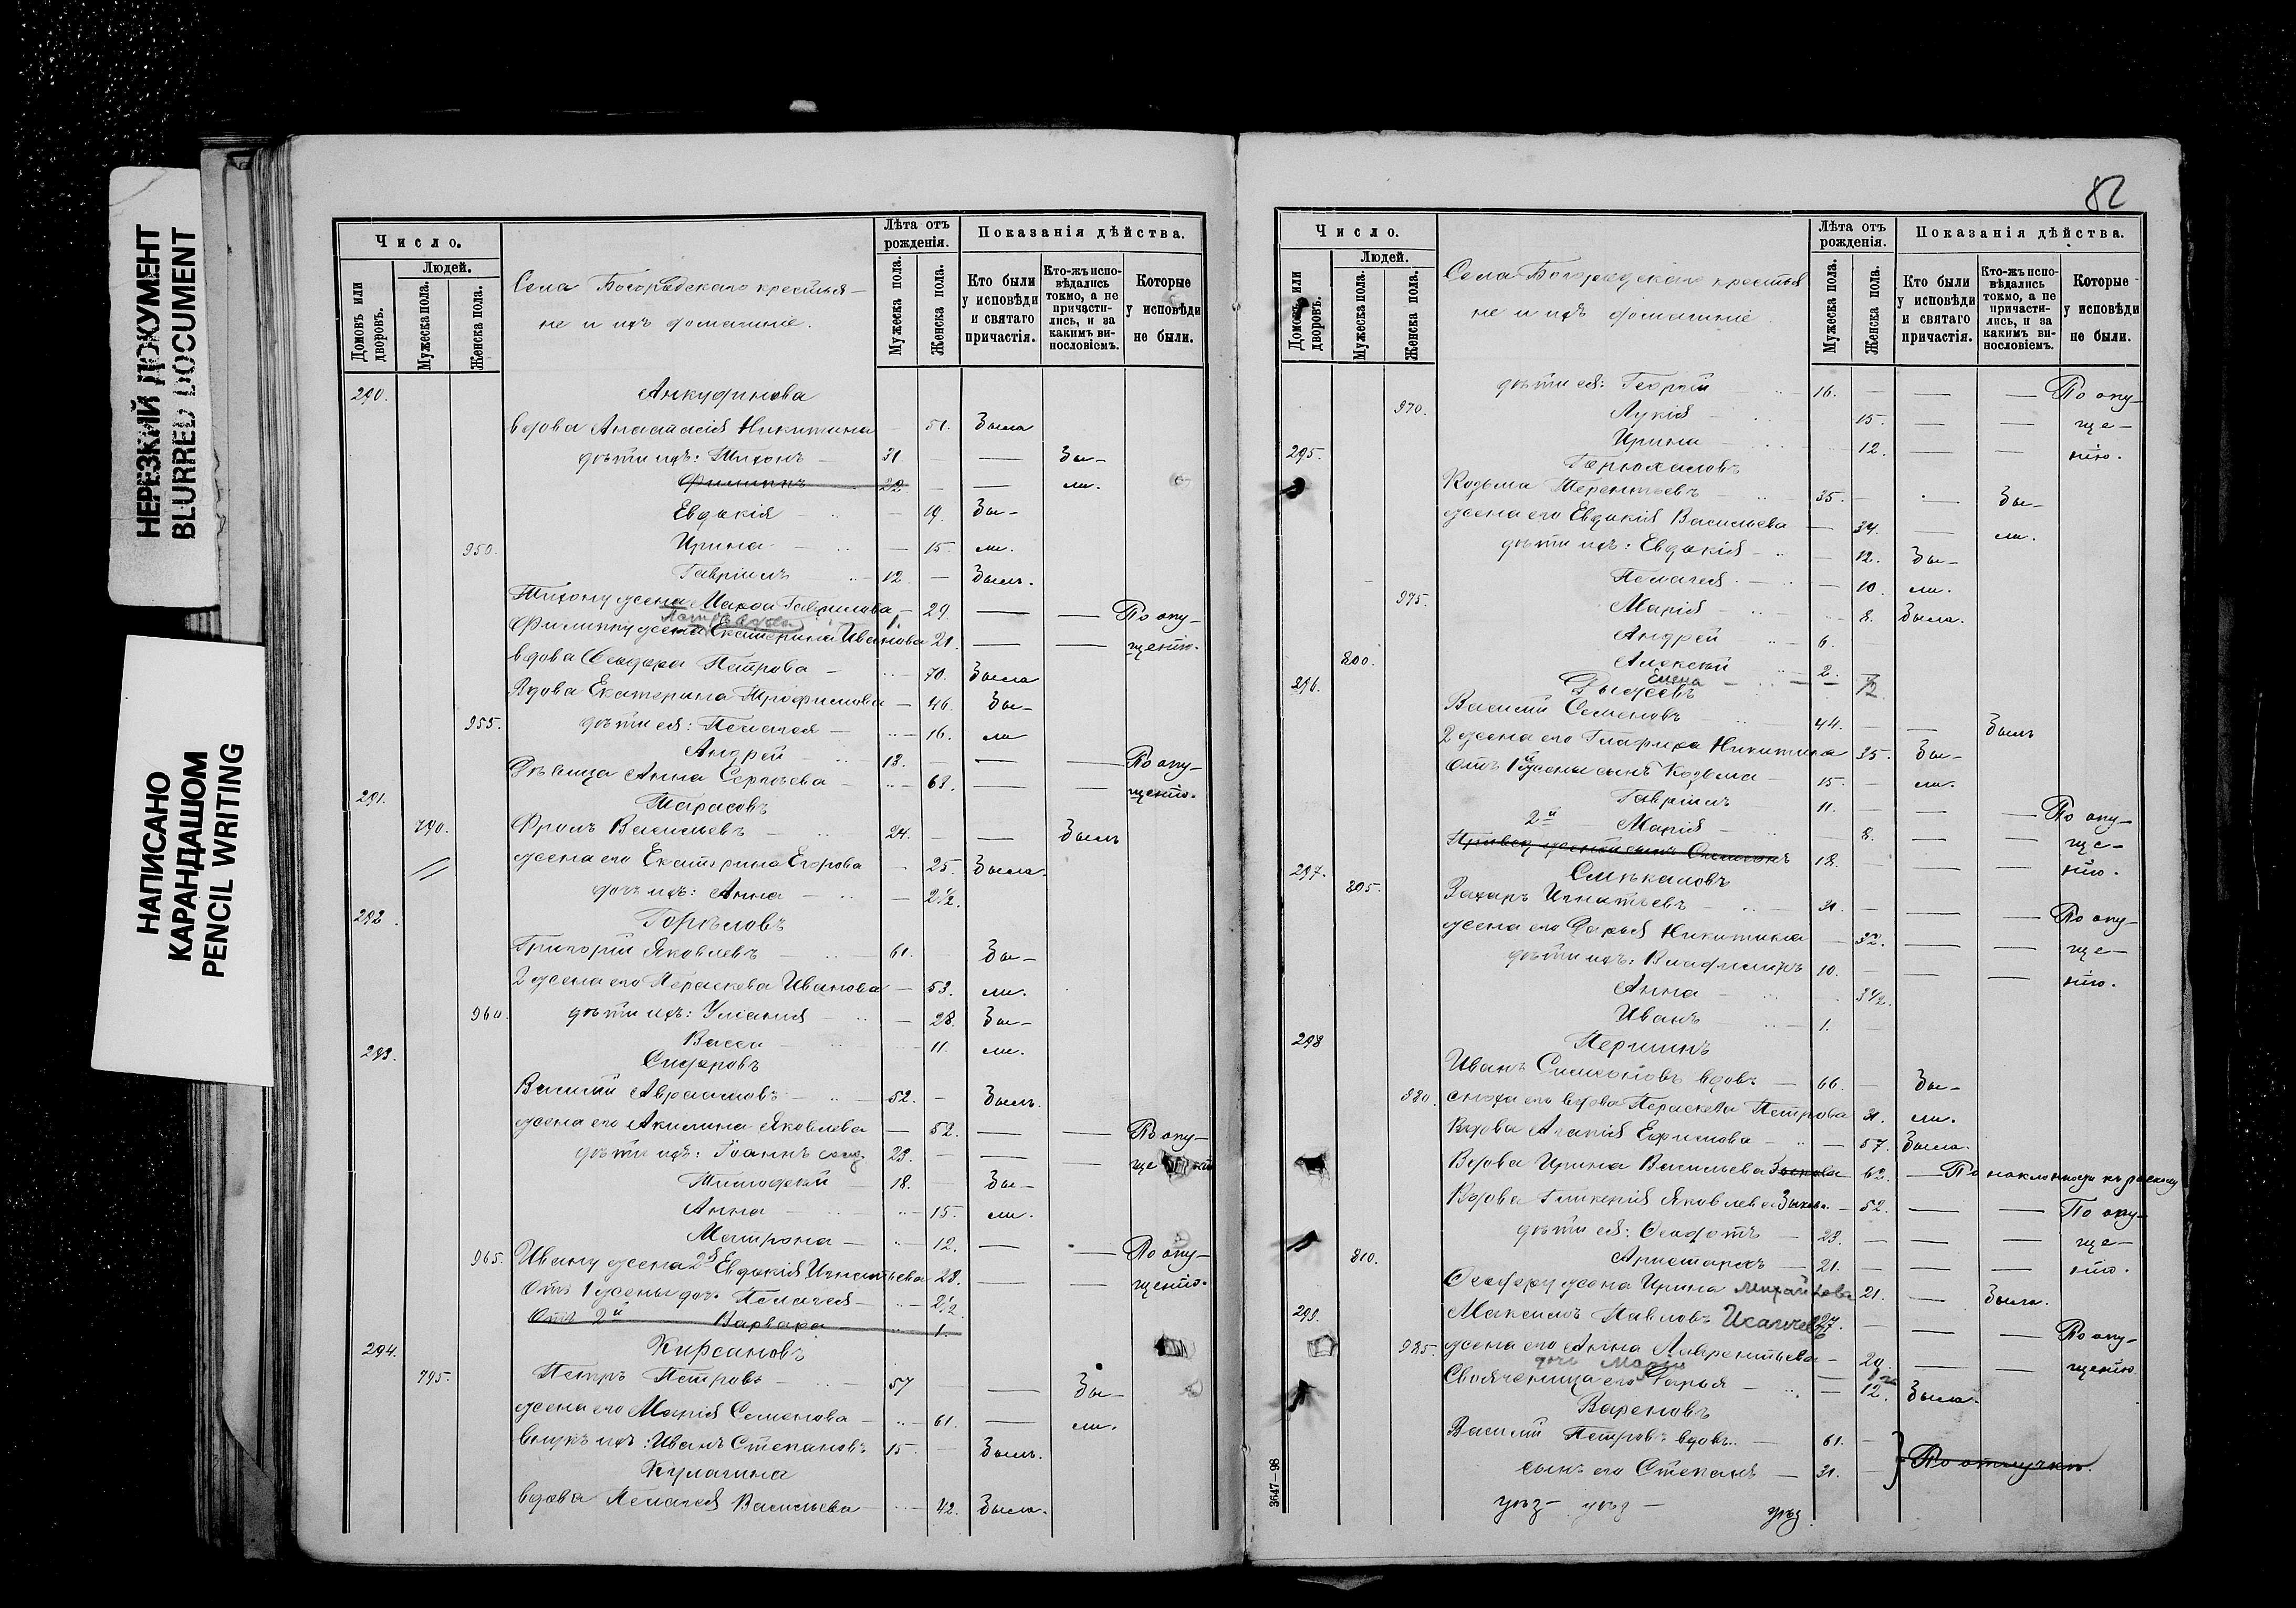 НЕРЕЗКИЙ ДОКУМЕНТ
BLURRED DOCUMENT
НАПИСАНО
КАРАНДАШОМ
PENCIL WRITING
Число.
Людей.
Домовъ или дворовъ.
Мужеска пола.
Женска пола.
Села Богородскаго крестья-
не и ихъ домашніе.
Лѣта отъ рожденія.
Мужеска пола.
Женска пола.
Показанія дѣйства.
Кто были у исповѣди и святаго причастія.
Кто-жъ исповѣдались токмо, а не причастились, и за какимъ винословіемъ.
Которые у исповѣди не были.
290. Анкудинова
вдова Анастасія Никитина — 51. Была
дѣти ихъ: Тихонъ — 31 — Бы-
Филиппъ 22 — — ли.
Евдокія — 19. Бы-
950. Ирина — 15. ли.
Гавріилъ — 12 — Былъ.
Тихону жена Гаврилова — 29 — — По опу-
Филиппу жена Екатерина Иванова 21. — — щенію.
вдова Петрова — 70. Была
Вдова Екатерина Трофимова — 46. Бы-
955. дѣти ея: Пелагея — 16. ли
Андрей — 13. — — По опу-
Дѣвица Анна Сергѣева — 68. — — щенію.
291. Тарасовъ
790. Фролъ Васильевъ — 24. — — Былъ
жена его Екатерина Егорова — 25. Была.
дочь ихъ: Анна — 2 1/2.
292. Горѣловъ
Григорій Яковлевъ — 61. — Бы-
2 жена его Параскева Иванова — 53. ли.
960. дѣти ихъ: Уліанія — 28. Бы-
Васса — 11. ли.
293. Сидоровъ
Василій Авраамовъ — 52. — Былъ.
жена его Акилина Яковлева — 52. — — По опу-
дѣти ихъ: Іоаннъ 23. — — ще
Тимофей — 18. — Бы-
Анна — 15. ли.
Матрона — 12. — — По опу-
965. Ивану жена 2я Евдокія Игнатьева 28. — — щенію.
Отъ 1 жены доч. Пелагея — 2 1/2
Отъ 2й Варвара — 1.
294. Кирсановъ
795. Петръ Петровъ — 57 — Бы-
жена его Марія Семенова — 61. — ли.
внукъ ихъ: Иванъ Степановъ 15. — Былъ.
Кулагина
вдова Пелагея Васильева — 42. Была.
82
Число.
Людей.
Домовъ или дворовъ.
Мужеска пола.
Женска пола.
Села Богородскаго крестья
не и ихъ домашніе
Лѣта отъ рожденія.
Мужеска пола.
Женска пола.
Показанія дѣйства.
Кто были у исповѣди и святаго причастія.
Кто-жъ исповѣдались токмо, а не причастились, и за какимъ винословіемъ.
Которые у исповѣди не были.
дѣти ея: Георгій — 16. — — — По опу-
970. Лукія — 15. — — ще-
Ирина — 12. — — нію.
295.
Козьма Терентьевъ — 35. — Бы-
жена его Евдокія Васильева — 34. — ли.
дѣти ихъ: Евдокія — 12. Бы-
Пелагея — 10. ли.
975. Марія — 8. Была.
Андрей — 6.
800. Алексѣй — 2.
Елена
296. Рыжевъ
Василій Семеновъ — 44. — — Былъ
2 жена его Глафира Никитина 35. Бы-
Отъ 1й жены сынъ Козьма — 15. — ли.
Гавріилъ — 11. — — — По опу-
2й Марія — 8. — — ще-
18. — — — нію.
297.
805. Захаръ Игнатьевъ — 31. — — — По опу-
жена его Дарья Никитина — 32. — — ще-
дѣти ихъ: Владиміръ 10. — — — нію.
Анна — 3 1/2.
Иванъ — 1. —
298 Першинъ
Иванъ Симеоновъ вдовъ — 66. — Бы-
980. сноха его вдова Параскева Петрова 31. ли.
Вдова Агапія Ефимова — 57. Была.
Вдова Ирина Васильева 62. — По наклонности къ расколу
Вдова Гликерія Яковлева Зыкова. — 52. — — По опу-
дѣти ея: Феодотъ — 23. — — — ще-
810. Аристархъ — 21. — — — нію.
жена Ирина Михайлова 21. — Была.
299. Максимъ Павловъ 27. — — — По опу-
985. жена его Анна Лаврентьева — 20. — — щенію
дочь Марія
Свояченица его Дарья — 12. Была.
Вареновъ
Василій Петровъ вдовъ. — 61. —
сынъ его Степанъ — 31. — По отлучкѣ.
3647—98